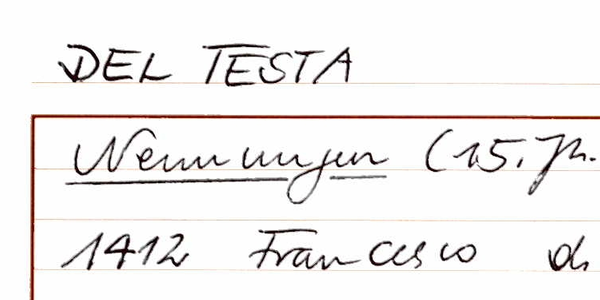 DEL TESTA
Nennungen (15. Jh.
1412 Francesco di